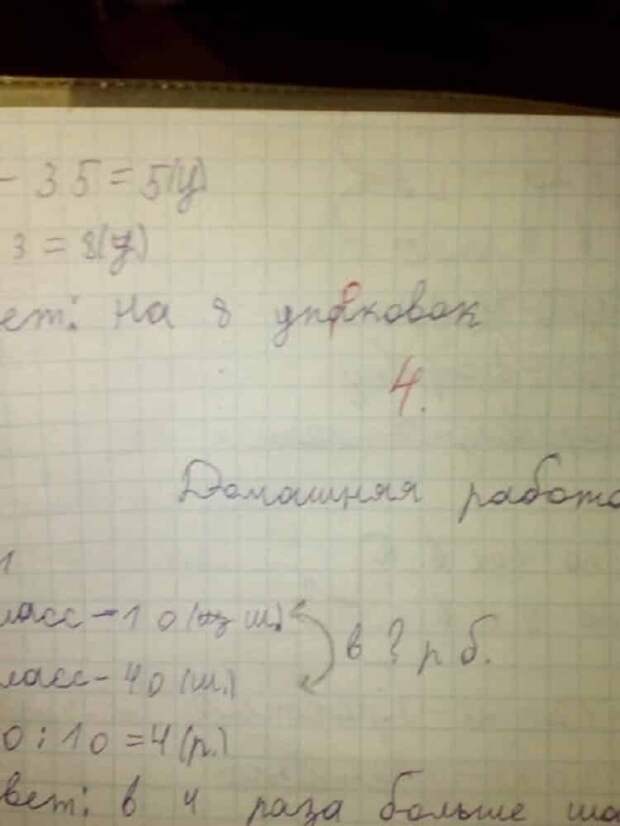 - 35 = 5(у)
3 = 8(у)
ет: на 8 упоковок
4.
Домашняя работа
1
ласс - 10(ш.)
в ? р б.
ласс - 40(ш.)
0 : 10 = 4 (р.)
вет: в 4 раза больше ша